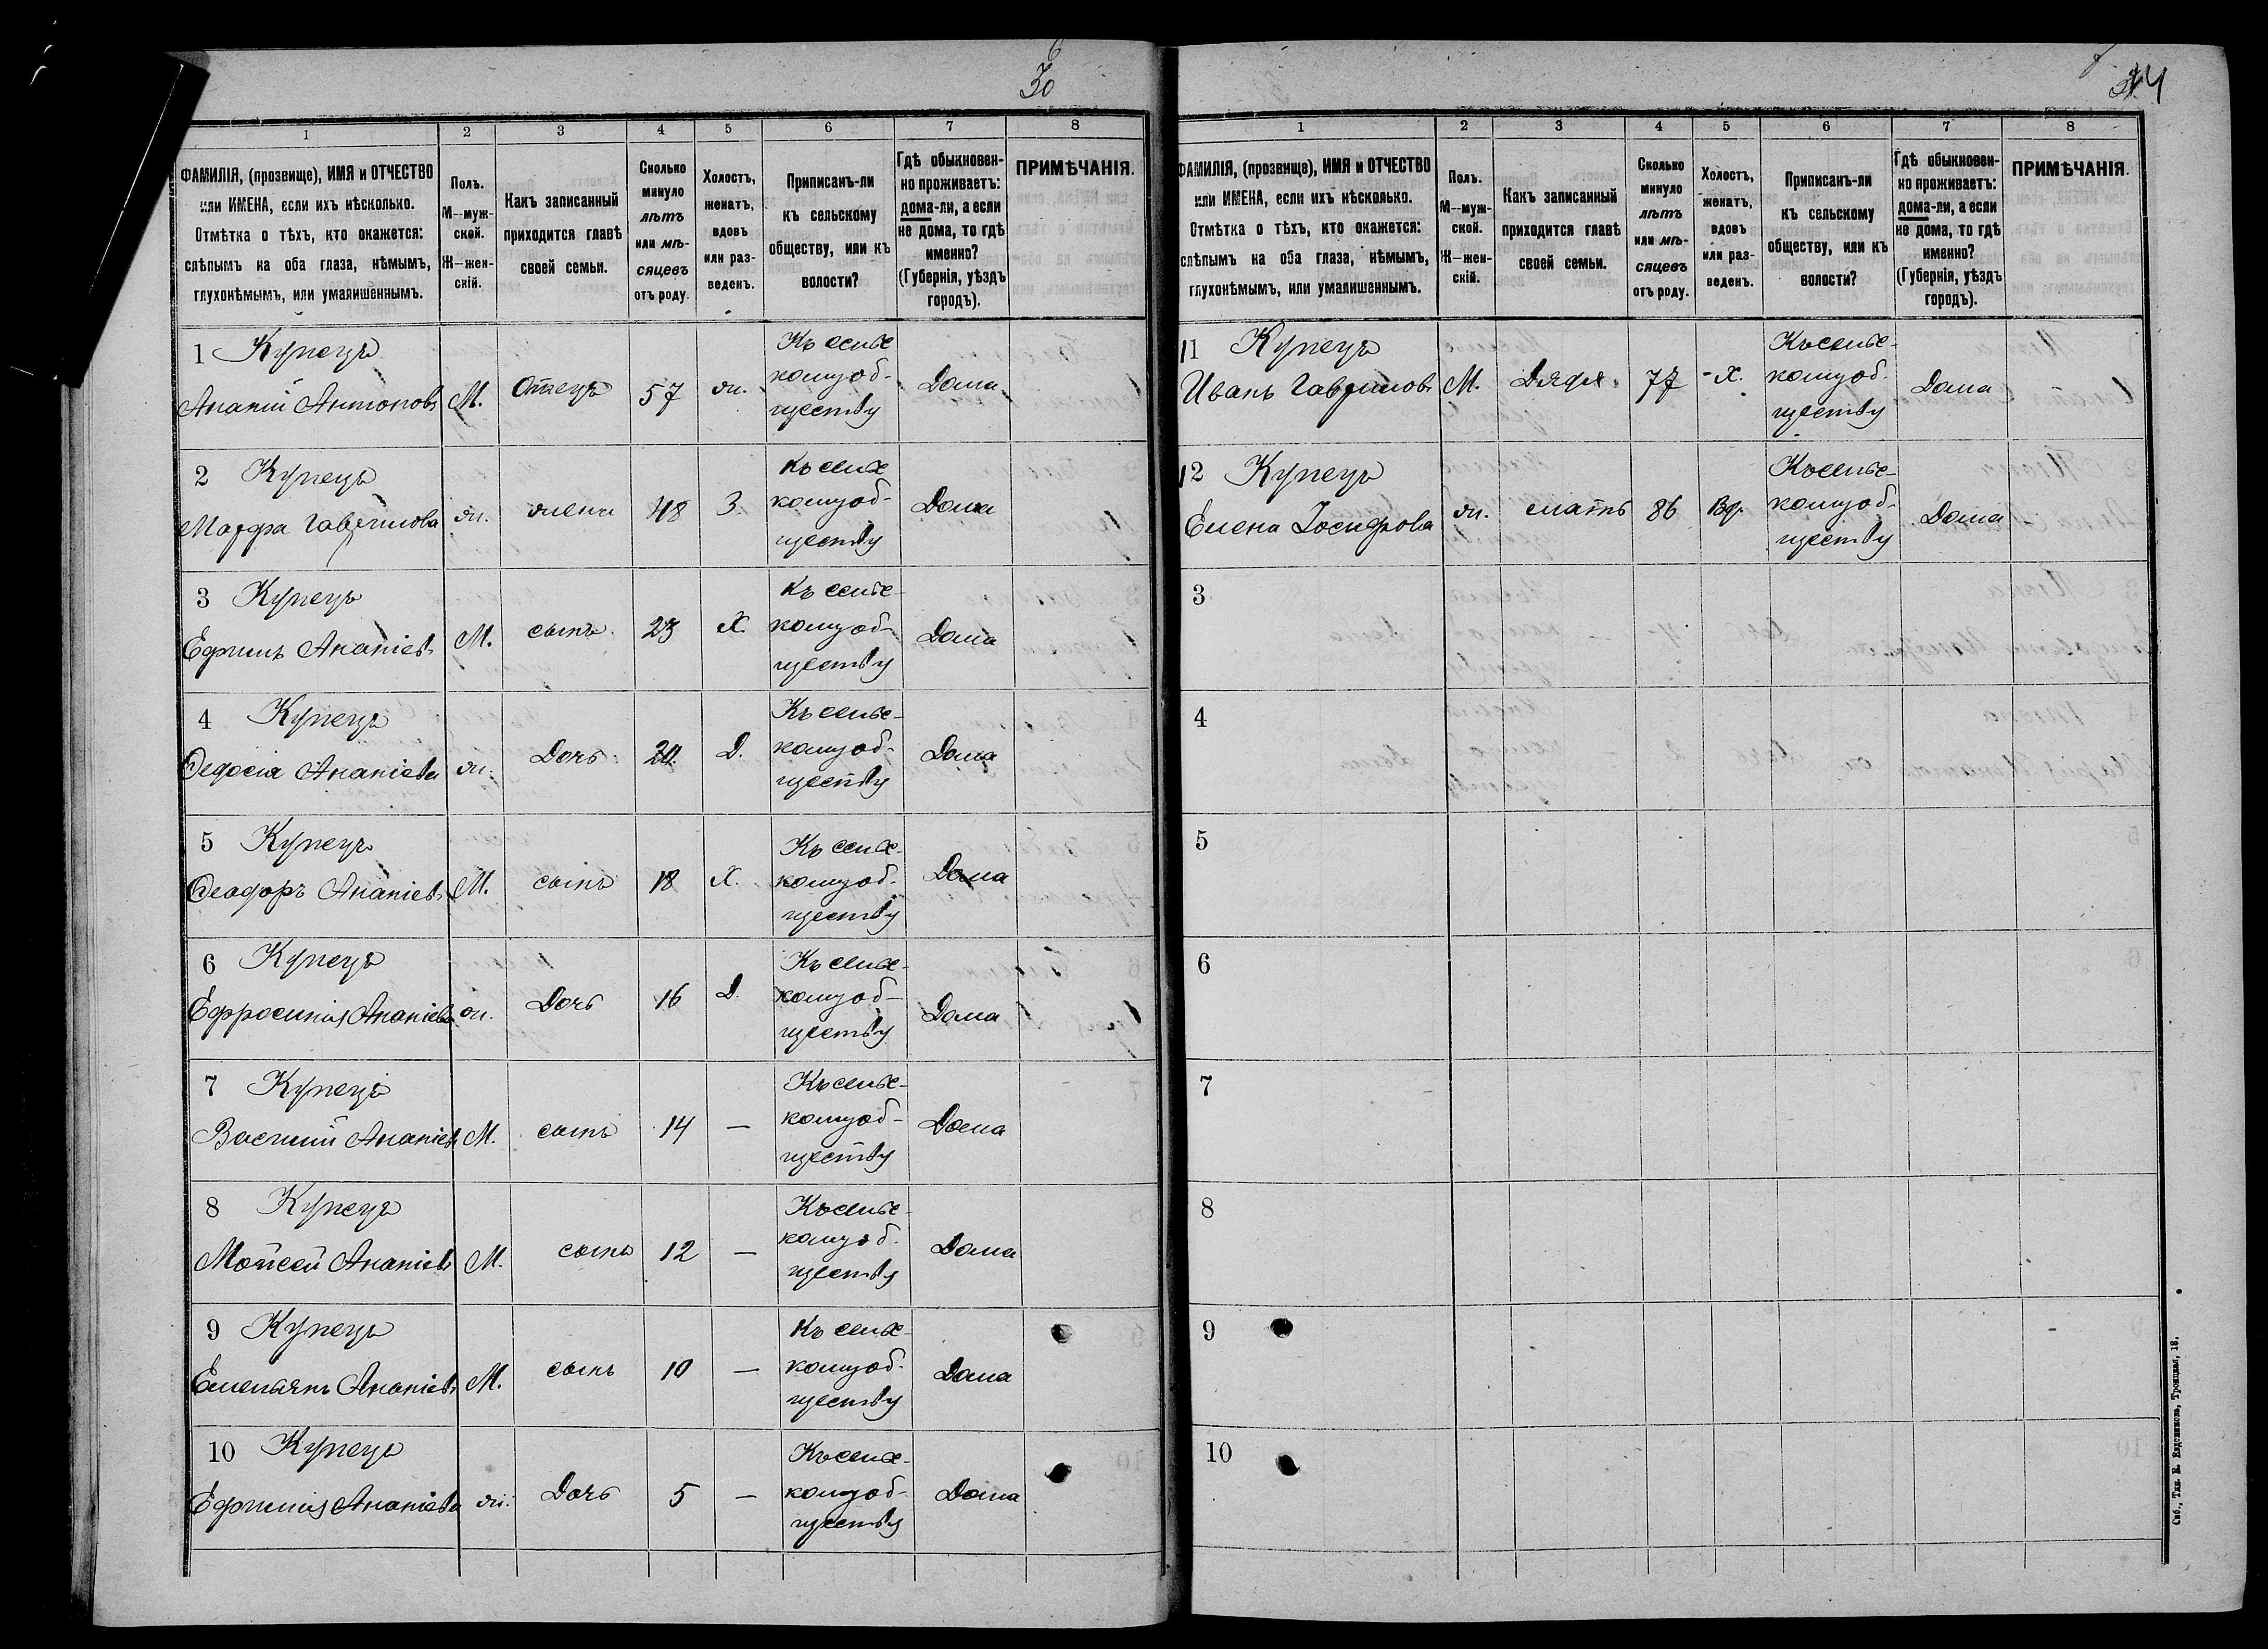 6
30
1 2 3 4 5 6 7 8
ФАМИЛІЯ, (прозвище), ИМЯ и ОТЧЕСТВО
или ИМЕНА, если ихъ нѣсколько.
Отмѣтка о тѣхъ, кто окажется:
слѣпымъ на оба глаза, нѣмымъ,
глухонѣмымъ, или умалишеннымъ.
Полъ.
М—муж-
ской.
Ж—жен-
скій.
Какъ записанный
приходится главѣ
своей семьи.
Сколько
минуло
лѣтъ
или мѣ-
сяцевъ
отъ роду.
Холостъ,
женатъ,
вдовъ
или раз-
веденъ.
Приписанъ-ли
къ сельскому
обществу, или къ
волости?
Гдѣ обыкновен-
но проживаетъ:
дома-ли, а если
не дома, то гдѣ
именно?
(Губернія, уѣздъ
городъ).
ПРИМѢЧАНІЯ.
1 Купецъ
Ананій Антоновъ М. Отецъ 57 ж. Къ сель-
скому об-
ществу Дома
2 Купецъ
Марфа Гаврилова ж. жена 48 З. Къ сель-
скому об-
ществу Дома
3 Купецъ
Ефимъ Ананіевъ М. сынъ 23 Х. Къ сель-
скому об-
ществу Дома
4 Купецъ
Ѳедосія Ананіева ж. Дочь 20 Д. Къ сель-
скому об-
ществу Дома
5 Купецъ
Ѳеодоръ Ананіевъ М. сынъ 18 Х. Къ сель-
скому об-
ществу Дома
6 Купецъ
Ефросинія Ананіева ж. Дочь 16 Д. Къ сель-
скому об-
ществу Дома
7 Купецъ
Василій Ананіевъ М. сынъ 14 — Къ сель-
скому об-
ществу Дома
8 Купецъ
Мойсей Ананіевъ М. сынъ 12 — Къ сель-
скому об-
ществу Дома
9 Купецъ
Емельянъ Ананіевъ М. сынъ 10 — Къ сель-
скому об-
ществу Дома
10 Купецъ
Ефимія Ананіева ж. Дочь 5 — Къ сель-
скому об-
ществу Дома
1 2 3 4 5 6 7 8
ФАМИЛІЯ, (прозвище), ИМЯ и ОТЧЕСТВО
или ИМЕНА, если ихъ нѣсколько.
Отмѣтка о тѣхъ, кто окажется:
слѣпымъ на оба глаза, нѣмымъ,
глухонѣмымъ, или умалишеннымъ.
Полъ.
М—муж-
ской.
Ж—жен-
скій.
Какъ записанный
приходится главѣ
своей семьи.
Сколько
минуло
лѣтъ
или мѣ-
сяцевъ
отъ роду.
Холостъ,
женатъ,
вдовъ
или раз-
веденъ.
Приписанъ-ли
къ сельскому
обществу, или къ
волости?
Гдѣ обыкновен-
но проживаетъ:
дома-ли, а если
не дома, то гдѣ
именно?
(Губернія, уѣздъ
городъ).
ПРИМѢЧАНІЯ.
11 Купецъ
Иванъ Гавриловъ М. Дядя 77 Х. Къ сель-
скому об-
ществу Дома
12 Купецъ
Елена Іосифова ж. мать 86 Вд. Къ сель-
скому об-
ществу Дома
3
4
5
6
7
8
9
10
Спб., Тип. Е. Евдокимова, Троицкая, 18.